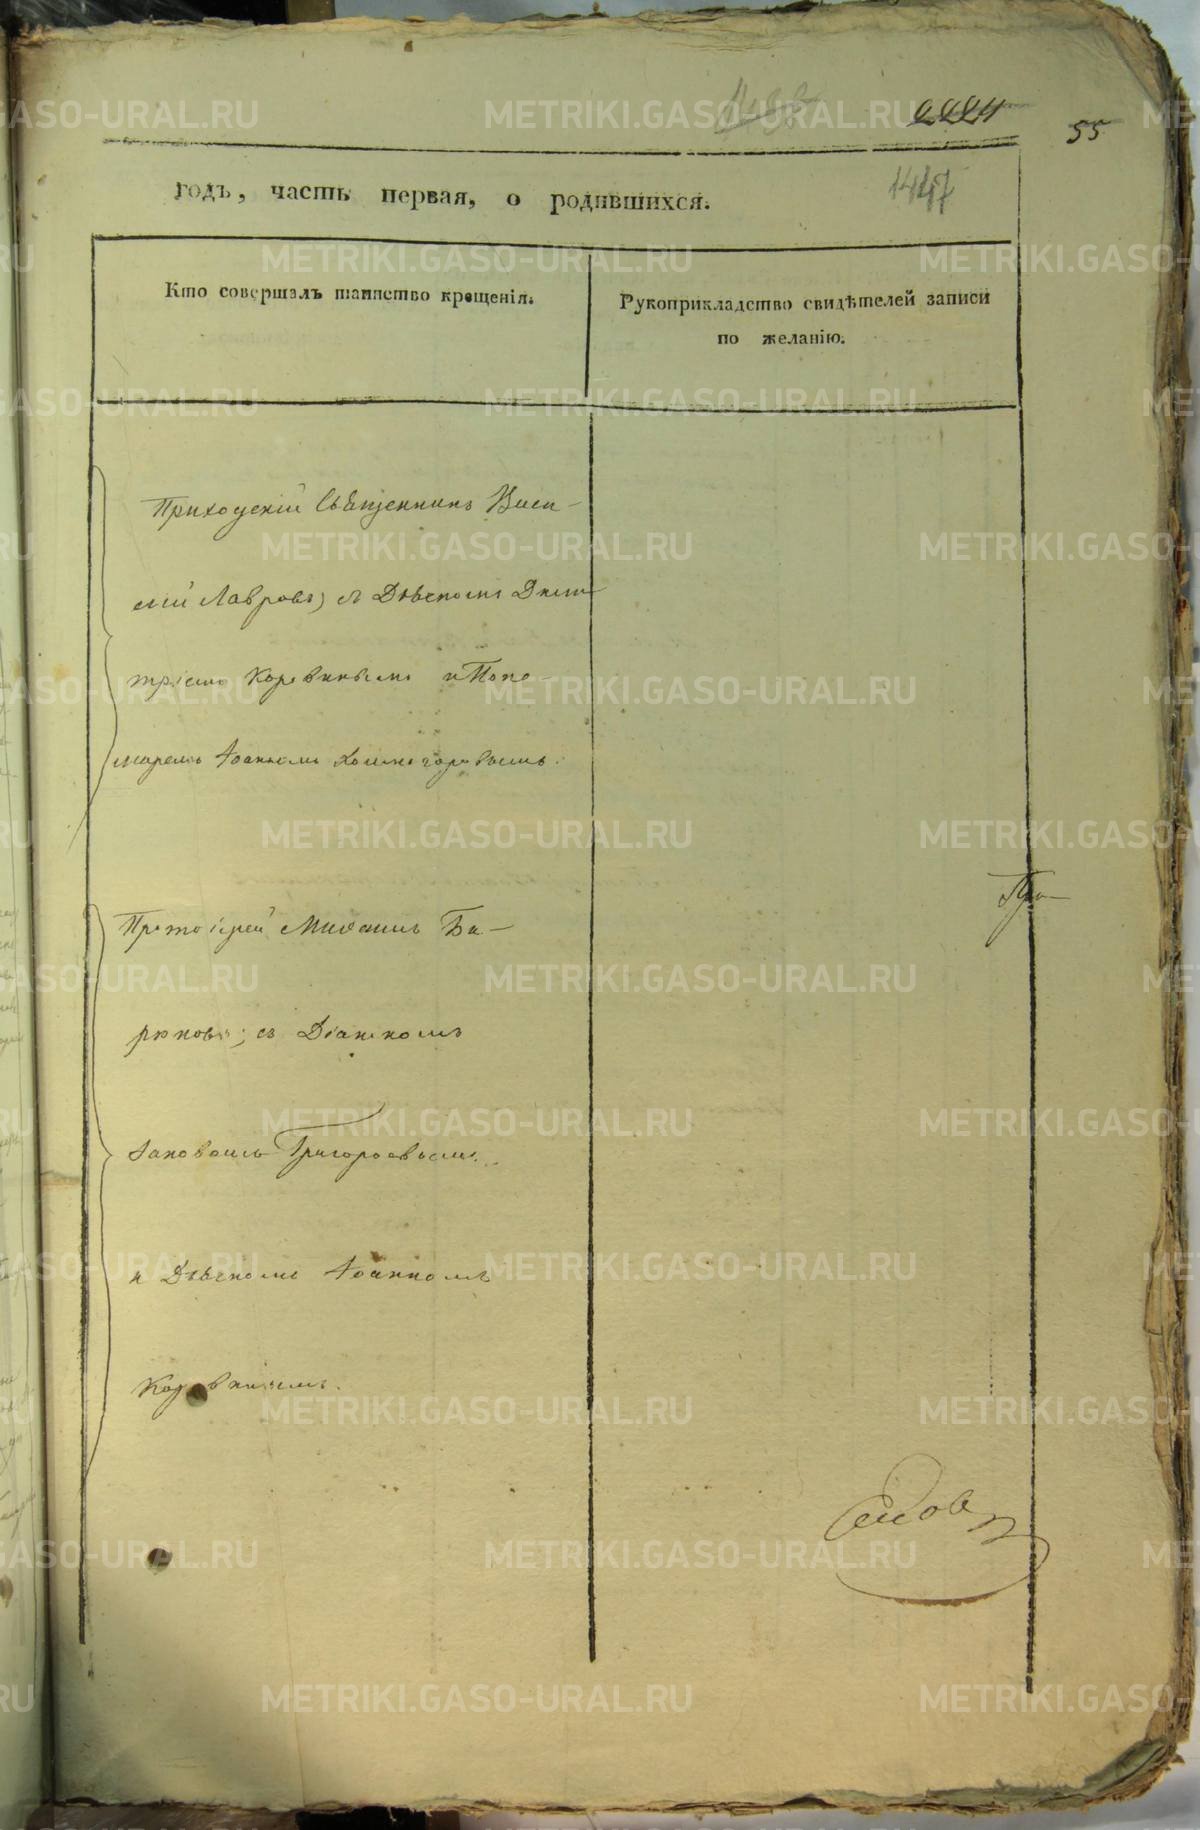 55
1447
годъ, часть первая, о родившихся.
Кто совершалъ таинство крещенія.
Рукоприкладство свидѣтелей записи
по желанію.
Приходскій Священникъ Васи-
лій Лавровъ, съ Дьячкомъ Дмит-
тріемъ Коровинымъ и Поно-
маремъ Іоанномъ Холмогоровымъ.
Протоіерей Михаилъ Би-
рюковъ; съ Діакономъ
Іаковомъ Григорьевымъ
и Дьячкомъ Іоанномъ
Коровинымъ.
METRIKI.GASO-URAL.RU